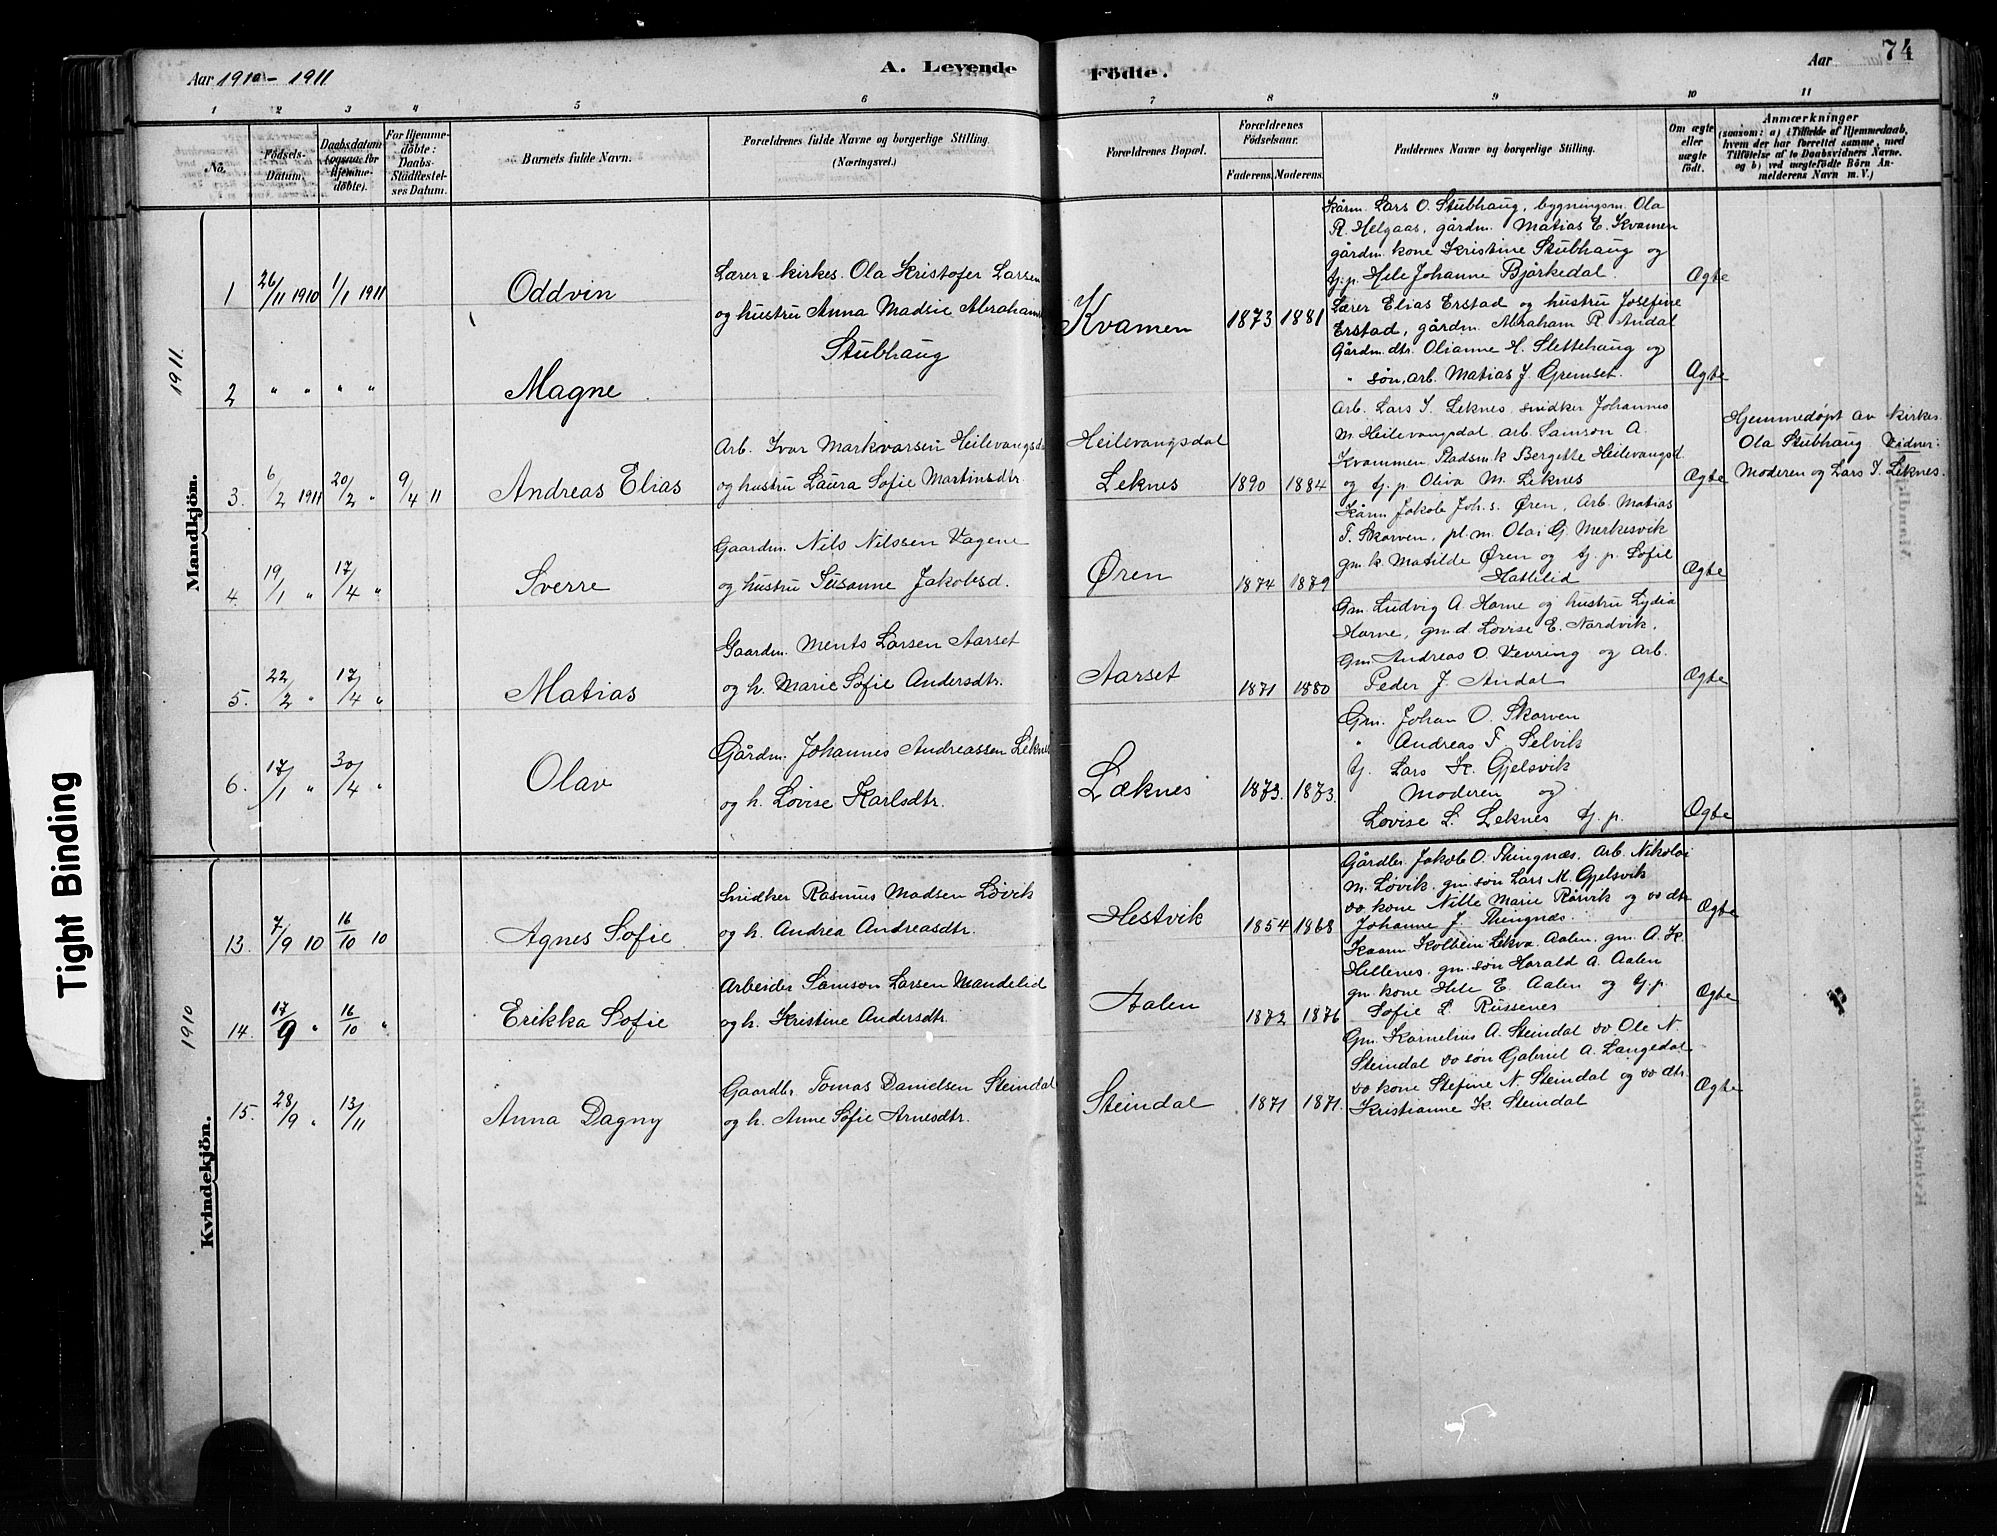 Aar 1910 - 1911
A. Levende
Födte.
Aar
74
1 2 3 4 5 6 7 8 9 10 11
No.
Födsels-
Datum.
Daabsdatum
(ogsaa for
Hjemme-
döbte).
For Hjemme-
döbte:
Daabs-
Stadfæstel-
ses Datum.
Barnets fulde Navn.
Forældrenes fulde Navne og borgerlige Stilling
(Næringsvei.)
Forældrenes Bopæl.
Forældrenes
Födselsaar.
Faderens. Moderens.
Faddernes Navne og borgerlige Stilling.
Om ægte
eller
uægte
født.
Anmærkninger
(saasom: a) i Tilfælde af Hjemmedaab,
hvem der har forrettet samme, med
Tilföielse af to Daabsvidners Navne.
og b) ved uægtefödte Börn An-
melderens Navn m. V.)
1911
Mandkjön.
1
26/11 1910
1/1 1911
Oddvin
Lærer & kirkes. Ola Kristofer Larsen
og hustru Anna Madsie Abraham
Stubhaug
Kvamen
1873 1881
Kårm. Lars O. Stubhaug, bygningsm. Ola
R. Helgaas, gårdm. Matias E. Kvamen
gårdm. kone Kristine Stubhaug og
tj.p. Hele Johanne Bjørkedal.
Ægte
2
" " " "
Magne
Lærer Elias Erstad og hustru Josefine
Erstad, gårdm. Abraham R. Andal
Gårdm. dtr. Olianne H. Slettehaug og
" søn, arb. Matias J. Gremset.
Ægte
3.
6/2 1911
20/2 "
9/4 11
Andreas Elias
Arb. Ivar Markvarsen Heilevangsd
og hustru Laura Sofie Martinsdtr.
Heilevangsdal
Leknes
1890 1884
Arb. Lars I. Leknes, snidker Johannes
M. Heilevangsdal, arb. Samson A.
Kvammen, Pladsm.k Bergette Heilevangsd.
og tj. p. Oliva M. Leknes
Ægte
Hjemmedøpt av kirkes.
Ola Stubhaug Vidner:
Moderen og Lars I. Leknes.
4.
19/1 "
17/4 "
Sverre
Gaardm. Nils Nilssen Vagene
og hustru Susanne Jakobsd.
Øren
1874 1879
Kårm Jakob Joh.s. Øren, Arb. Matias
T. Skorven, pl. m. Olai G. Merkesvik
gm. k. Matilde Øren og tj. p. Sofie
Hatlelid
Ægte
5.
22/2 "
17/4 "
Matias
Gaardm. Ments Larsen Aarset
og h. Marie Sofie Andersdtr.
Aarset
1871 1880
Gm. Ludvig A. Horne og hustru Lydia
Horne, gm.d. Lovise E. Nordvik,
Gm Andreas O. Vevring og arb.
Peder J. Andal
Ægte
6.
17/1 "
30/4 "
Olav
Gårdm. Johannes Andreassen Leknes
og h. Lovise Karlsdtr.
Læknes
1873. 1873.
Gm. Johan O. Skorven
" Andreas T. Selvik
tj. Lars K. Gjelsvik
Moderen og
Lovise L. Leknes tj. p.
Ægte
1910
Kvindekjön.
13.
7/9 10
16/10 10
Agnes Sofie
Snidker Rasmus Madsen Løvik
og h. Andrea Andreasdtr.
Hestvik
1854 1868
Gårdbr. Jakob O. Thingnæs, Arb. Nikolai
M. Løvik, gm. søn Lars M. Gjelsvik
do kone Nille Marie Rørvik og do dtr
Johanne J. Thingnæs.
Ægte
14.
17/9 "
16/10 "
Erikka Sofie
Arbeider Samson Larsen Mandelid
og h. Kristine Andersdtr.
Aalen
1872 1876
Kaarm Kolbein Lekva. Aalen, gm. A. K.
Hellenes, gm. søn Harald A. Aalen
gm. kone Hele E. Aalen og tj. p.
Sofie L. Russenes
Ægte
15.
28/9 "
13/11
Anna Dagny
Gaardbr. Tomas Danielsen Steindal
og h. Anne Sofie Arnesdtr.
Steindal
1871 1871.
Gm. Kornelius A. Steindal do Ole N.
Steindal do søn Gabriel A. Langedal
do kone Stefine N. Steindal og do dtr.
Kristianne K. Steindal
Ægte
Tight Binding